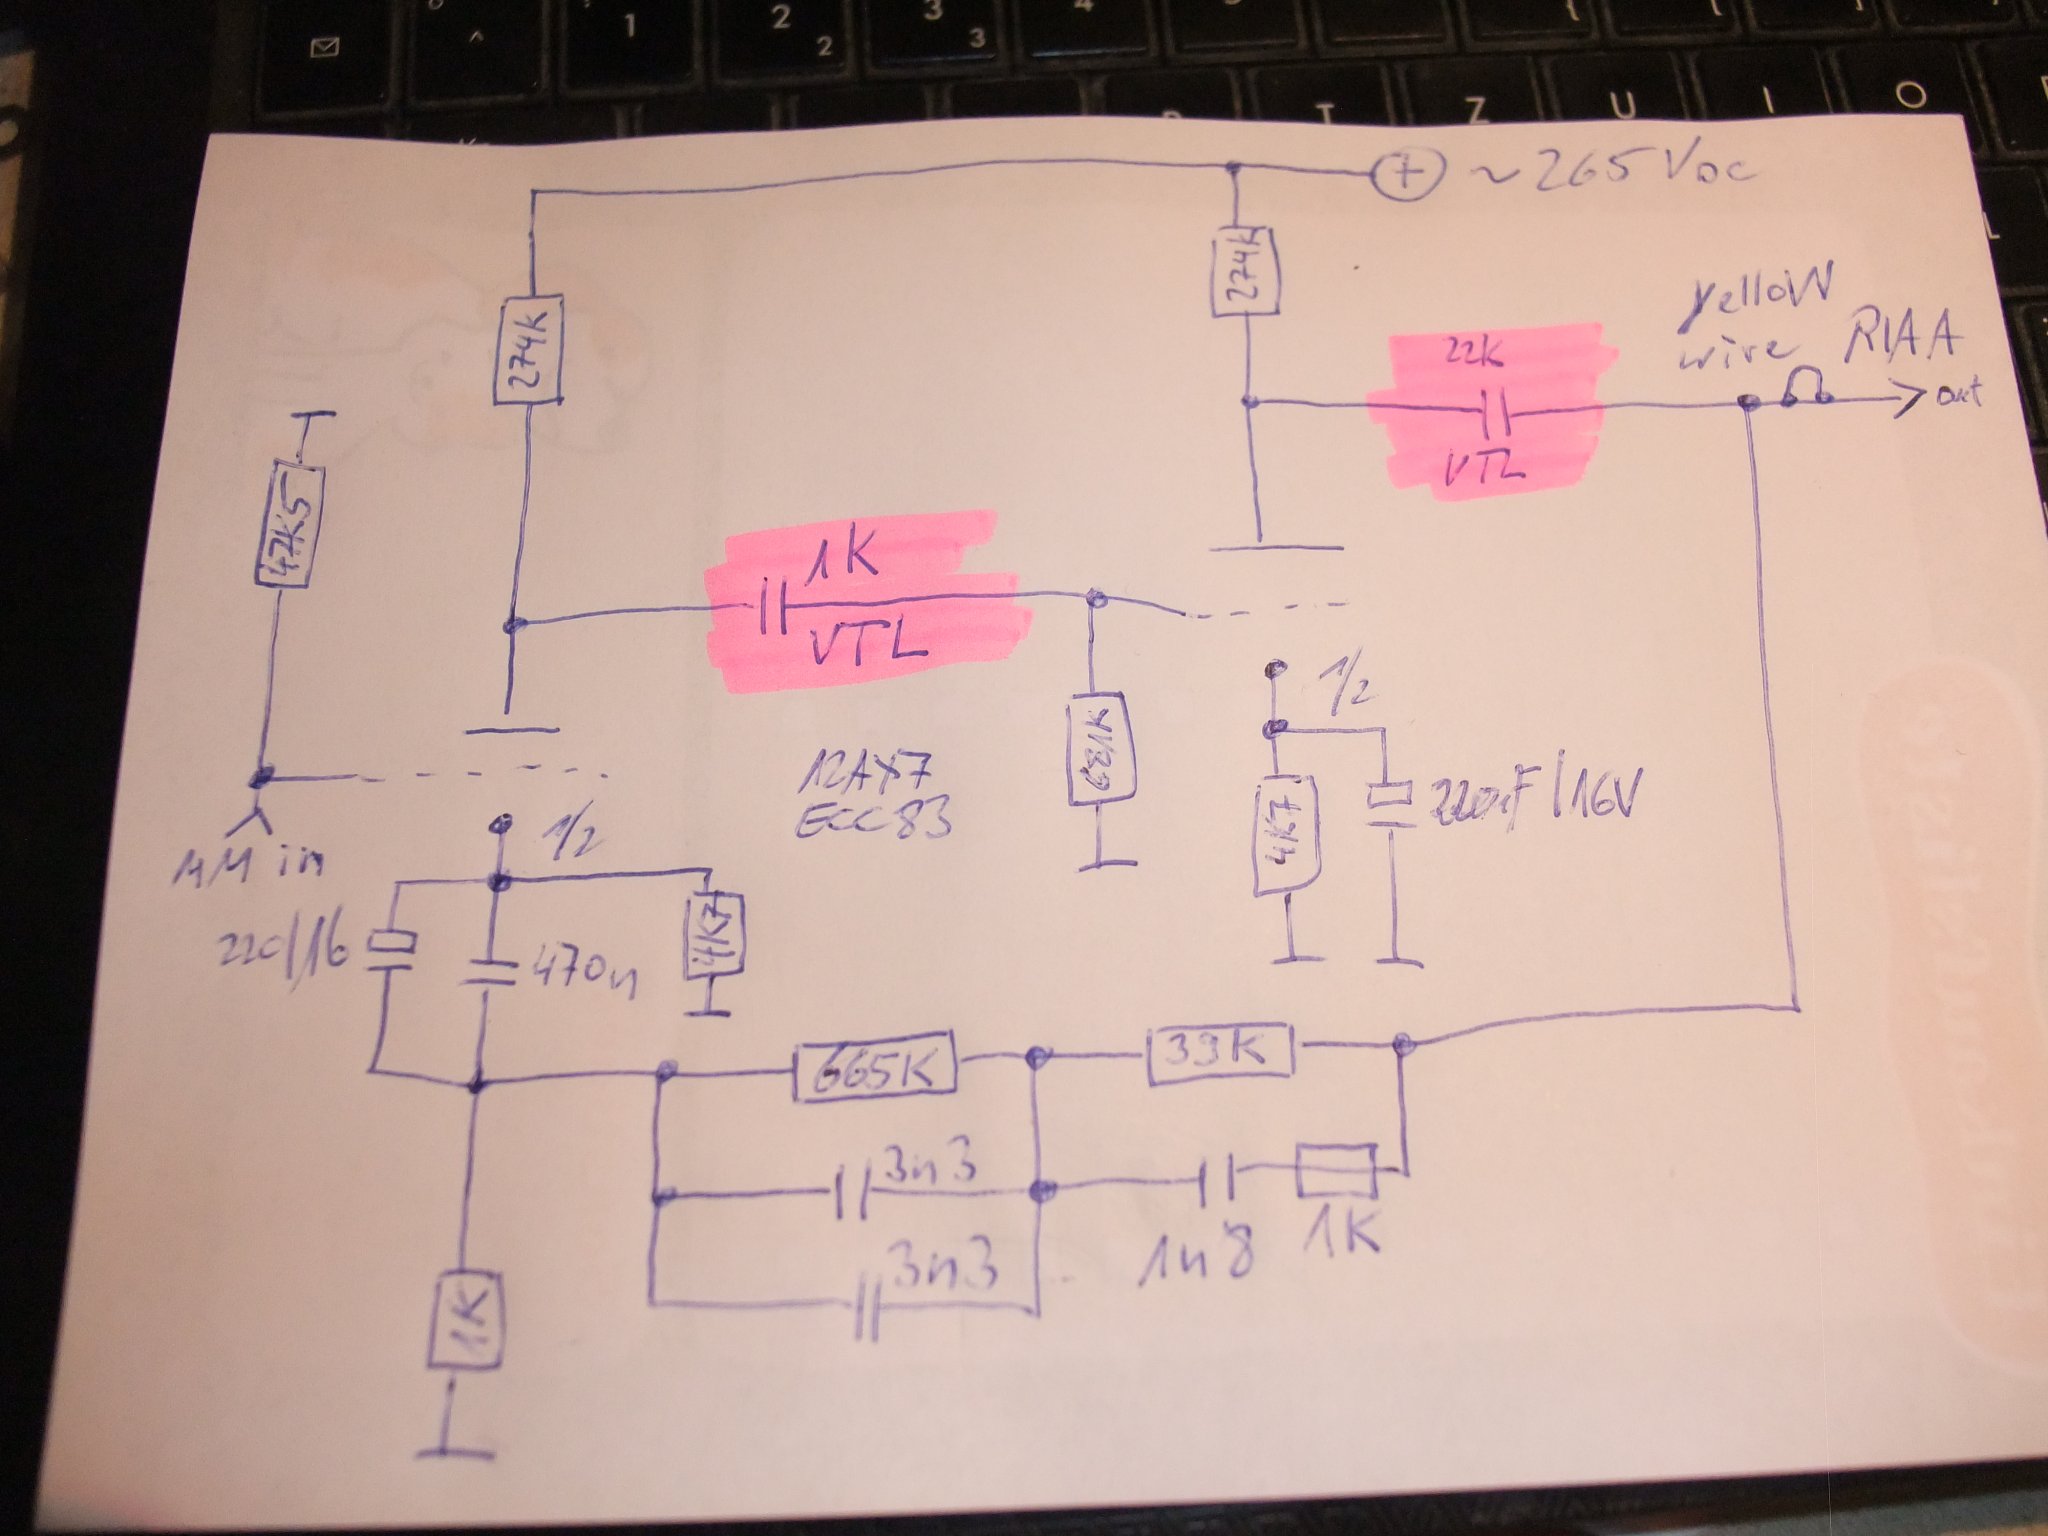 1
2
2
3
3
4
T
Z
U
I
O
~265VDC
274K
274K
yelloW
wire
RIAA
out
22K
VTL
47K5
1K
VTL
681K
12AX7
ECC83
1/2
4K7
220µF/16V
MM in
1/2
220/16
470n
4K7
665K
39K
3n3
3n3
1n8
1K
1K